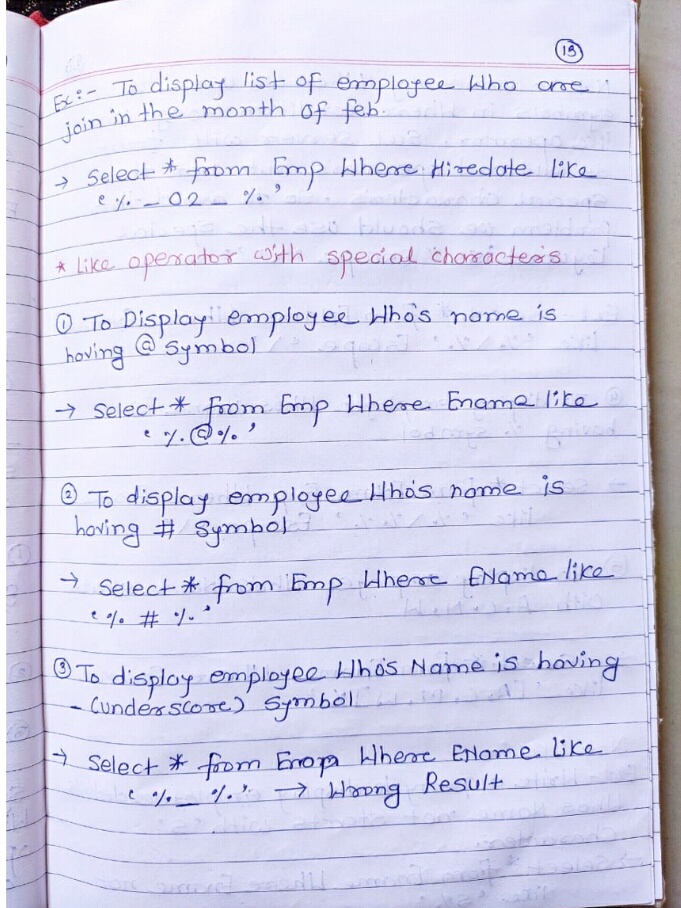 13
Ex:- To display list of employee Who are
join in the month of feb.
→ Select * from Emp Where Hiredate Like
'%_02_%'
* Like operator with special characters
① To Display employee Who's name is
having @ Symbol
→ Select * from Emp Where Ename like
'%@%'
② To display employee Who's name is
having # Symbol
→ Select * from Emp Where EName like
'% # %'
③ To display employee Who's Name is having
- (underscore) Symbol
→ Select * from Where EName Like
'%_%' → Wrong Result